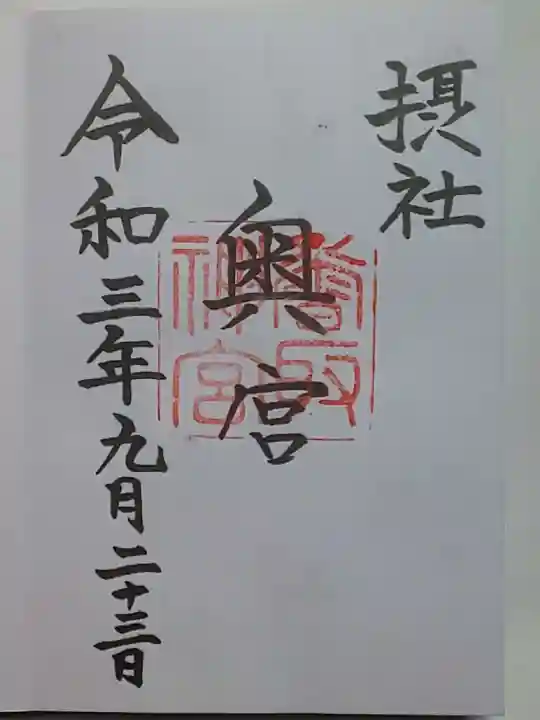 摂社
奥宮
香取
神宮
令和三年九月二十三日